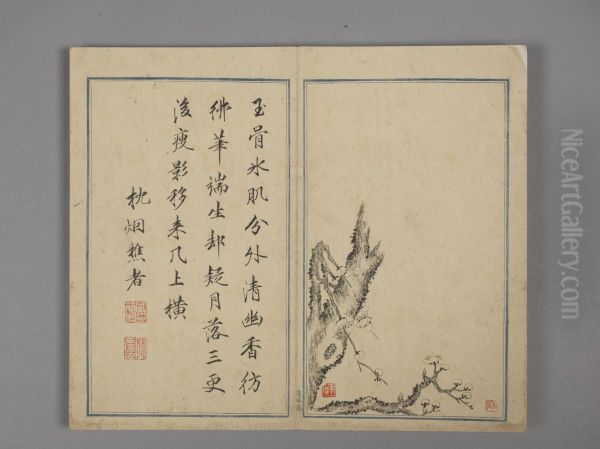 玉骨冰肌分外清幽香彷
彿華端坐却疑月落三更
後瘦影移来几上橫
枕烟樵者
NiceArtGallery.com